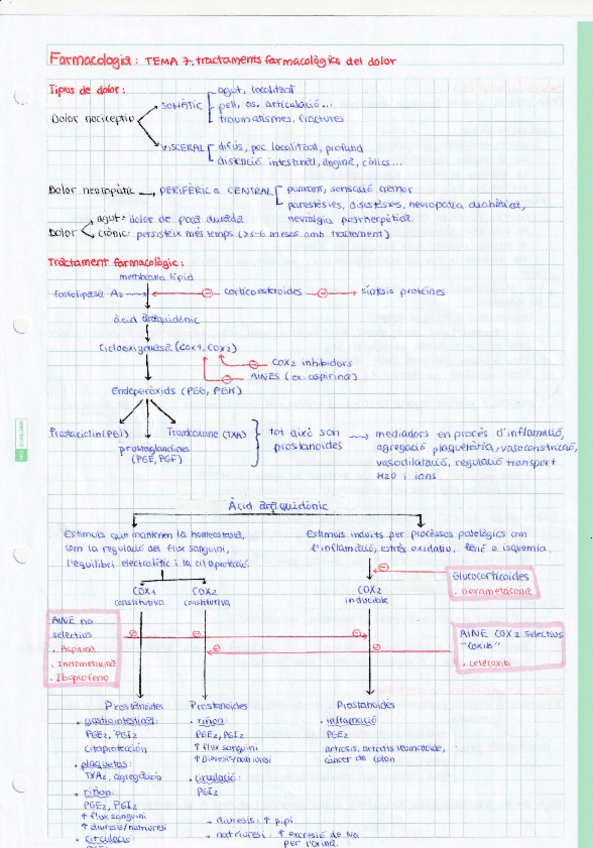 Farmacologia: TEMA 7. tractaments farmacològics del dolor
Tipus de dolor:
Dolor nociceptiu
SOMÀTIC
agut, localitzat
pell, os, articulació...
traumatismes, fractures
VISCERAL
difús, poc localitzat, profund
distenció intestinal, angina, còlics...
Dolor neuropàtic → PERIFÈRIC o CENTRAL
punxant, sensació cremor
parestèsies, disestèsies, neuropatia diabètica,
neuràlgia postherpètica
Dolor
agut: dolor de poca durada
crònic: persisteix més temps (>3-6 mesos amb tractament)
Tractament farmacològic:
membrana lípid
Fosfolipasa A2
⊖ corticosteroides ⊖ síntesis proteïnes
àcid araquidònic
Ciclooxigenasa (COX1, COX2)
⊖ COX2 inhibidors
⊖ AINES (ex: aspirina)
Endoperòxids (PGG, PGH)
Prostaciclin (PGI)
prostaglandines
(PGE, PGF)
Tromboxane (TXA)
tot això son
prostanoides
mediadors en procés d'inflamació,
agregació plaquetària, vasoconstricció,
vasodilatació, regulació transport
H2O i ions
Àcid araquidònic
Estímuls que mantenen la homeostasi,
com la regulació del flux sanguini,
l'equilibri electrolític i la citoprotecció.
Estímuls induïts per processos patològics com
l'inflamació, estrés oxidatiu, lesió o isquemia.
COX1
constitutiva
COX2
constitutiva
COX2
inducible
⊖
Glucocorticoides
. Dexametasona
AINE no
selectius
. Aspirina
. Indometacina
. Ibuprofeno
⊖ ⊖ ⊖
⊖ ⊖
AINE COX2 selectius
"coxib"
. celecoxib
Prostanoides
• gastrointestinal:
PGE2, PGI2
Citoprotección
• plaquetas:
TXA2, agregación
• riñon:
PGE2, PGI2
↑ flux sanguini
↑ diuresis/natriuresi
• circulació:
Prostanoides
• riñon:
PGE2, PGI2
↑ flux sanguini
↑ Diuresi/natriuresi
• circulació:
PGI2
Prostanoides
• inflamació
PGE2
artrosis, artritis reumatoide,
càncer de colon
- diuresis: ↑ pipi
- natriuresi: ↑ excresió de Na
per l'orina.